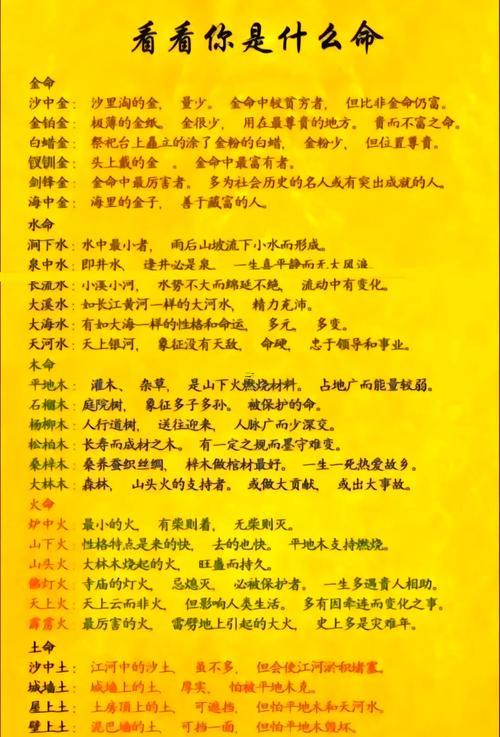 看看你是什么命
金命
沙中金： 沙里淘的金， 量少。 金命中较贫穷者， 但比非金命仍富。
金铂金： 极薄的金纸。 金很少， 用在最尊貴的地方。 貴而不富之命。
白蜡金： 祭祀台上矗立的涂了金粉的白蜡， 金粉少， 但位置尊貴。
钗钏金： 头上戴的金 。 金命中最富有者。
剑锋金： 金命中最厉害者。 多为社会历史的名人或有突出成就的人。
海中金： 海里的金子， 善于藏富的人。
水命
涧下水： 水中最小者， 雨后山坡流下小水而形成。
泉中水： 即井水， 逢井必是泉， 一生喜平静而无大风浪
长流水： 小溪小河， 水势不大而绵延不绝， 流动中有变化。
大溪水： 如长江黄河一样的大河水， 精力充沛。
大海水： 有如大海一样的性格和命运， 多元， 多变。
天河水： 天上银河， 象征没有天敌， 命硬， 忠于领导和事业。
木命
平地木： 灌木、 杂草， 是山下火燃烧材料。 占地广而能量较弱。
石榴木： 庭院树， 象征多子多孙。 被保护的命。
杨柳木： 人行道树， 送往迎来， 人脉广而少深交。
松柏木： 长寿而成材之木。 有一定之规而墨守难变。
桑梓木： 桑养蚕织丝绸， 梓木做棺材最好。 一生一死热爱故乡。
大林木： 森林， 山头火的支持者。 或做大贡献， 或出大事故。
火命
炉中火： 最小的火， 有柴则着， 无柴则灭。
山下火： 性格特点是来的快， 去的也快。 平地木支持燃烧。
山头火： 大林木烧起的火， 旺盛而持久。
佛灯火： 寺庙的灯火， 忌熄灭， 必被保护者。 一生多遇貴人相助。
天上火： 天上云而非火， 但影响人类生活。 多有因牵连而变化之事。
霹雳火： 最厉害的火， 雷劈地上引起的大火， 史上多是灾难年。
土命
沙中土： 江河中的沙土， 虽不多， 但会使江河淤积堵塞。
城墙土： 城墙上的土， 厚实， 怕被平地木克。
屋上土： 土房顶上的土， 可遮挡， 但怕平地木和天河水。
壁上土： 泥巴墙的土， 可挡一面， 但怕平地木毁坏。